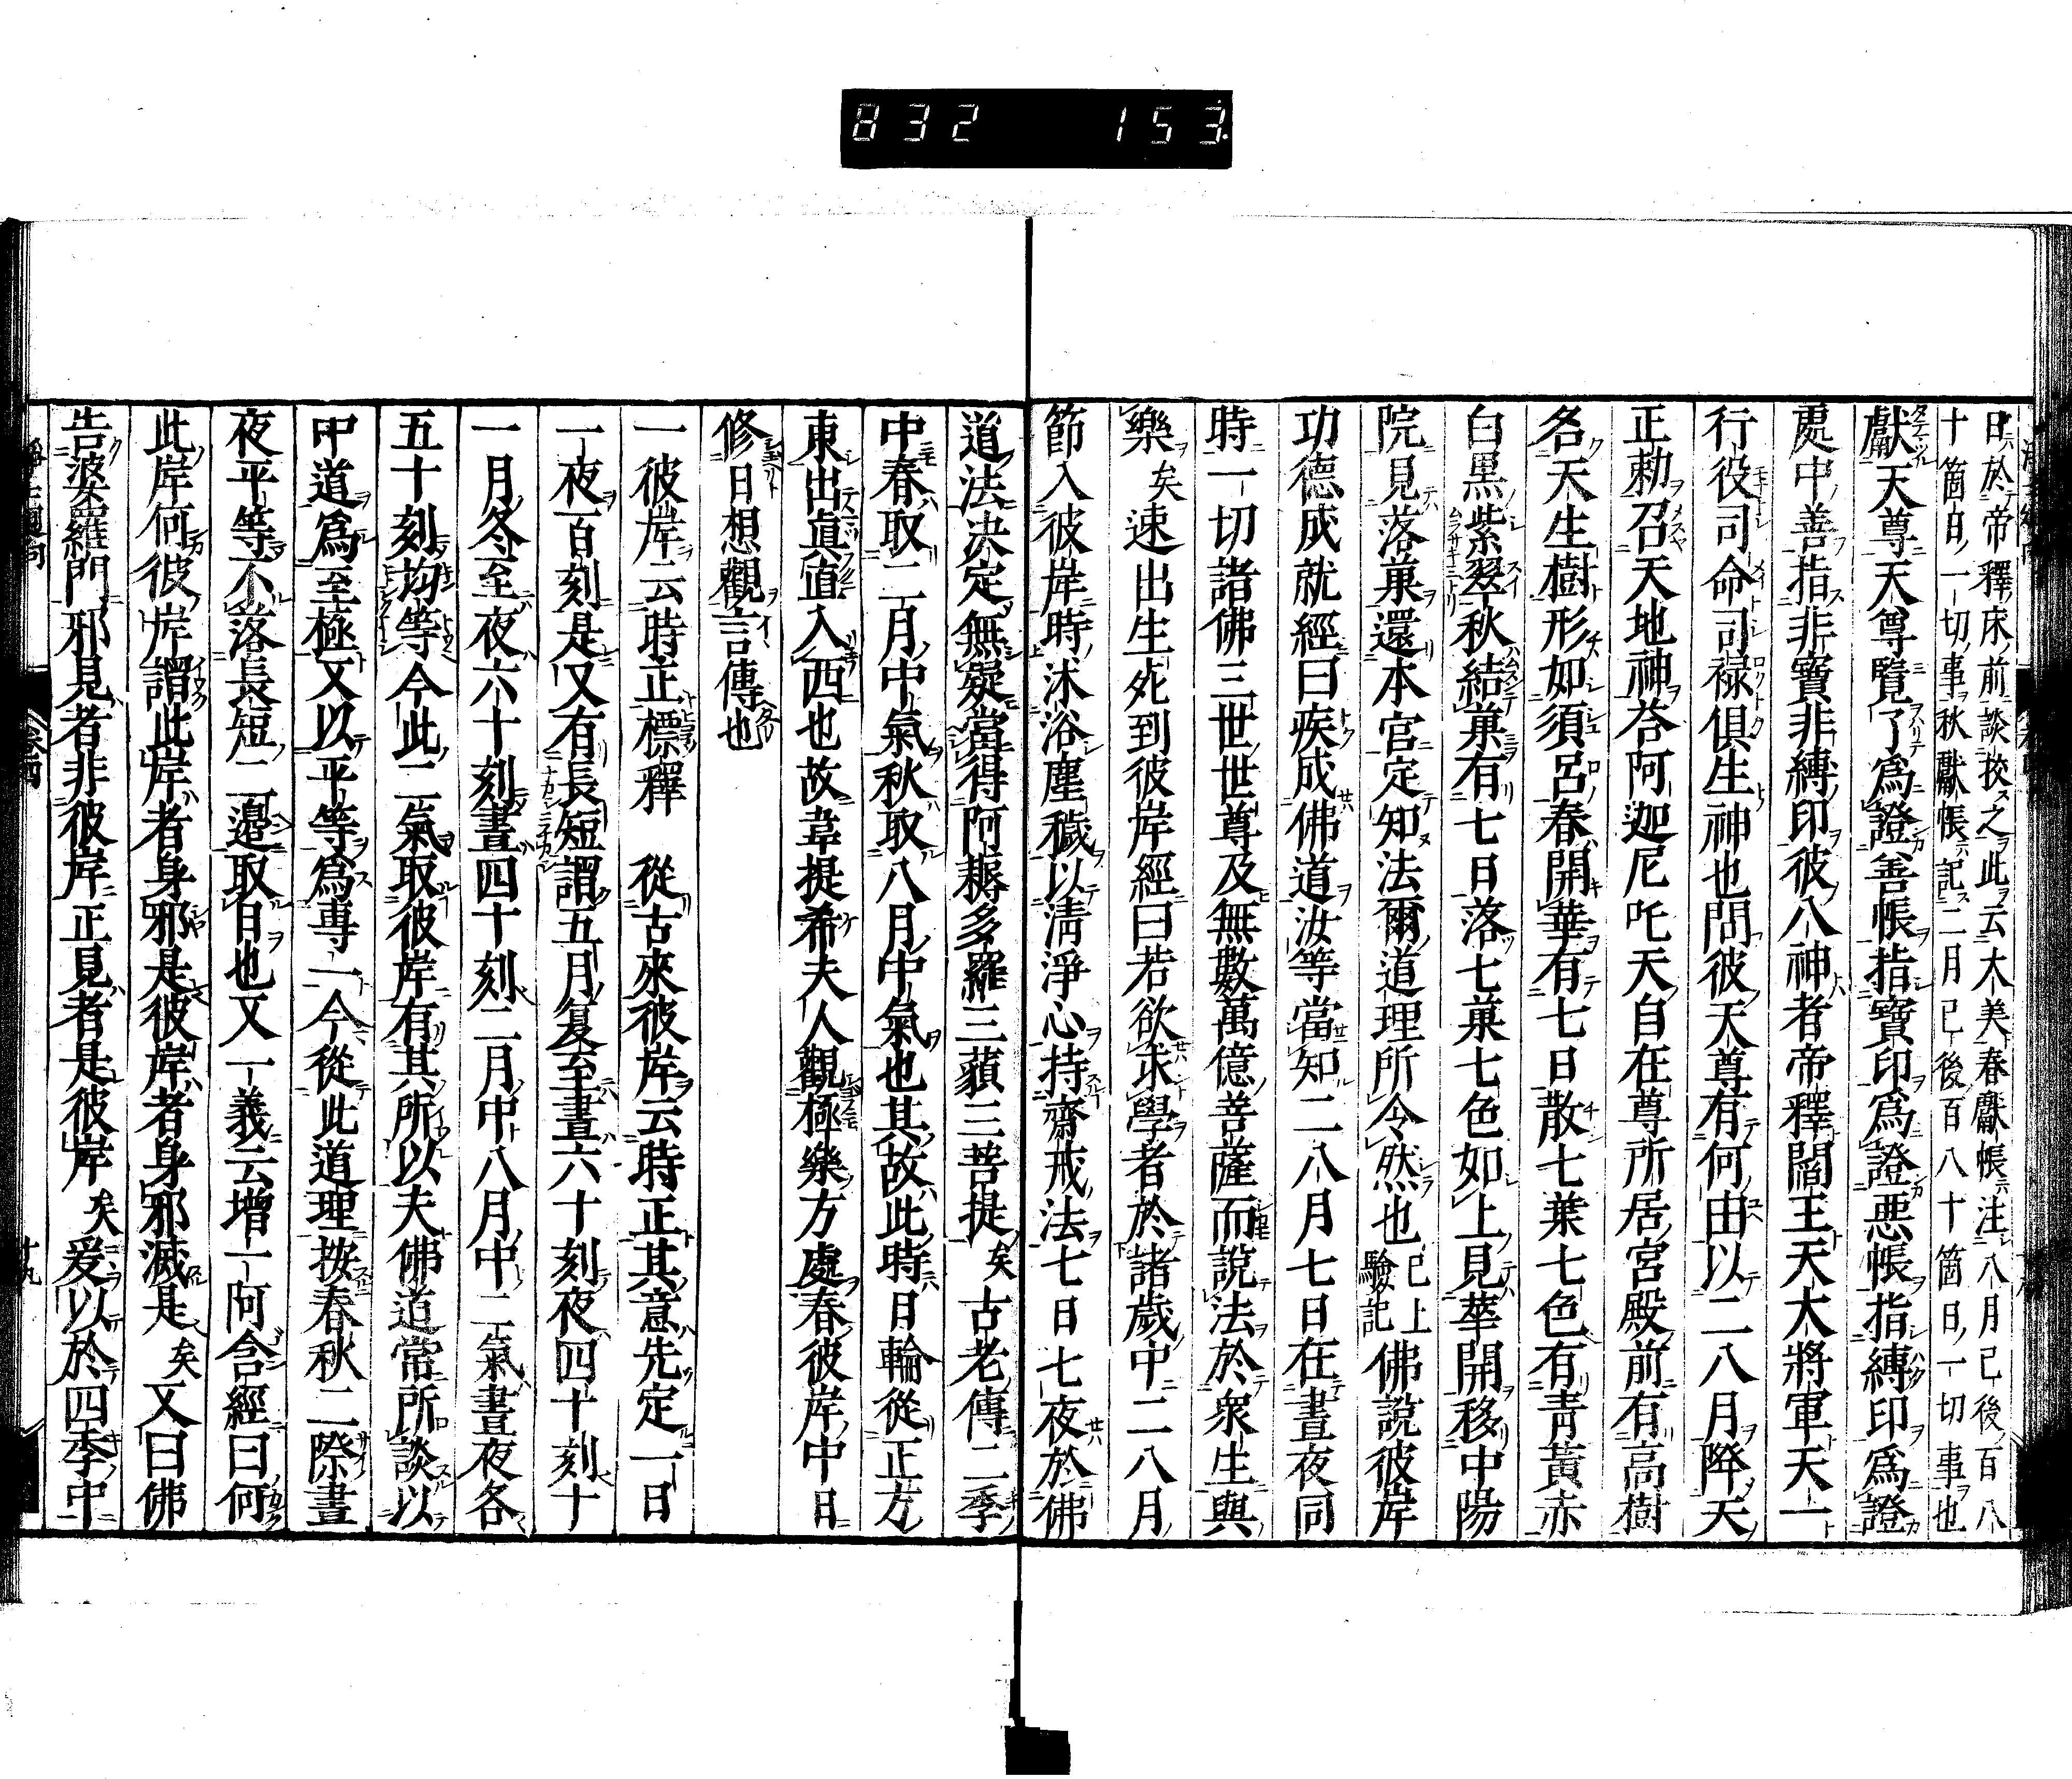 832 153
日於帝釋床前談挍之此云大美春獻帳注八月已後百八
十箇日一切事秋獻帳記二月已後百八十箇日一切事也
獻天尊天尊覽了爲證善帳指寶印爲證惡帳指縛印爲證
處中善指非寶非縛印彼八神者帝釋閻王天大將軍天一
行役司命司禄俱生神也問彼天尊有何由以二八月降天
正勅召天地神荅阿迦尼吒天自在尊所居宮殿前有高樹
名天生樹形如須呂春開華有七日散七葉七色有靑黃赤
白黒紫翠秋結菓有七日落七菓七色如上見華開移中陽
院見落菓還本官定知法爾道理所令然也已上驗記佛說彼岸
功德成就經曰疾成佛道汝等當知二八月七日在晝夜同
時一切諸佛三世世尊及無數萬億菩薩而說法於衆生與
樂矣速出生死到彼岸經曰若欲求學者於諸歲中二八月
節入彼岸時沐浴塵穢以淸淨心持齋戒法七日七夜於佛
道法决定無疑當得阿耨多羅三藐三菩提矣古老傳二季
中春取二月中氣秋取八月中氣也其故此時日輪從正方
東出眞直入西也故韋提希夫人觀極樂方處春彼岸中日
修日想觀言傳也
一彼岸云時正標釋　從古來彼岸云時正其意先定一日
一夜百刻是又有長短謂五月夏至晝六十刻夜四十刻十
一月冬至夜六十刻晝四十刻二月中八月中二氣晝夜各
五十刻均等今此二氣取彼岸有其所以夫佛道常所談以
中道爲至極又以平等爲專一今從此道理按春秋二際晝
夜平等不落長短二邉取日也又一義云增一阿含經曰何
此岸何彼岸謂此岸者身邪是彼岸者身邪滅是矣又曰佛
告婆羅門邪見者非彼岸正見者是彼岸矣爰以於四季中